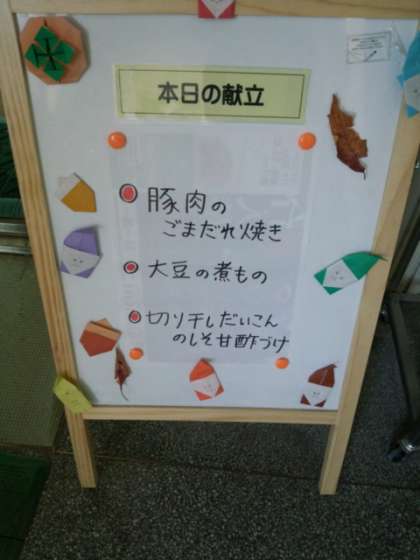 本日の献立
豚肉の
ごまだれ焼き
大豆の煮もの
切り干しだいこん
のしそ甘酢づけ